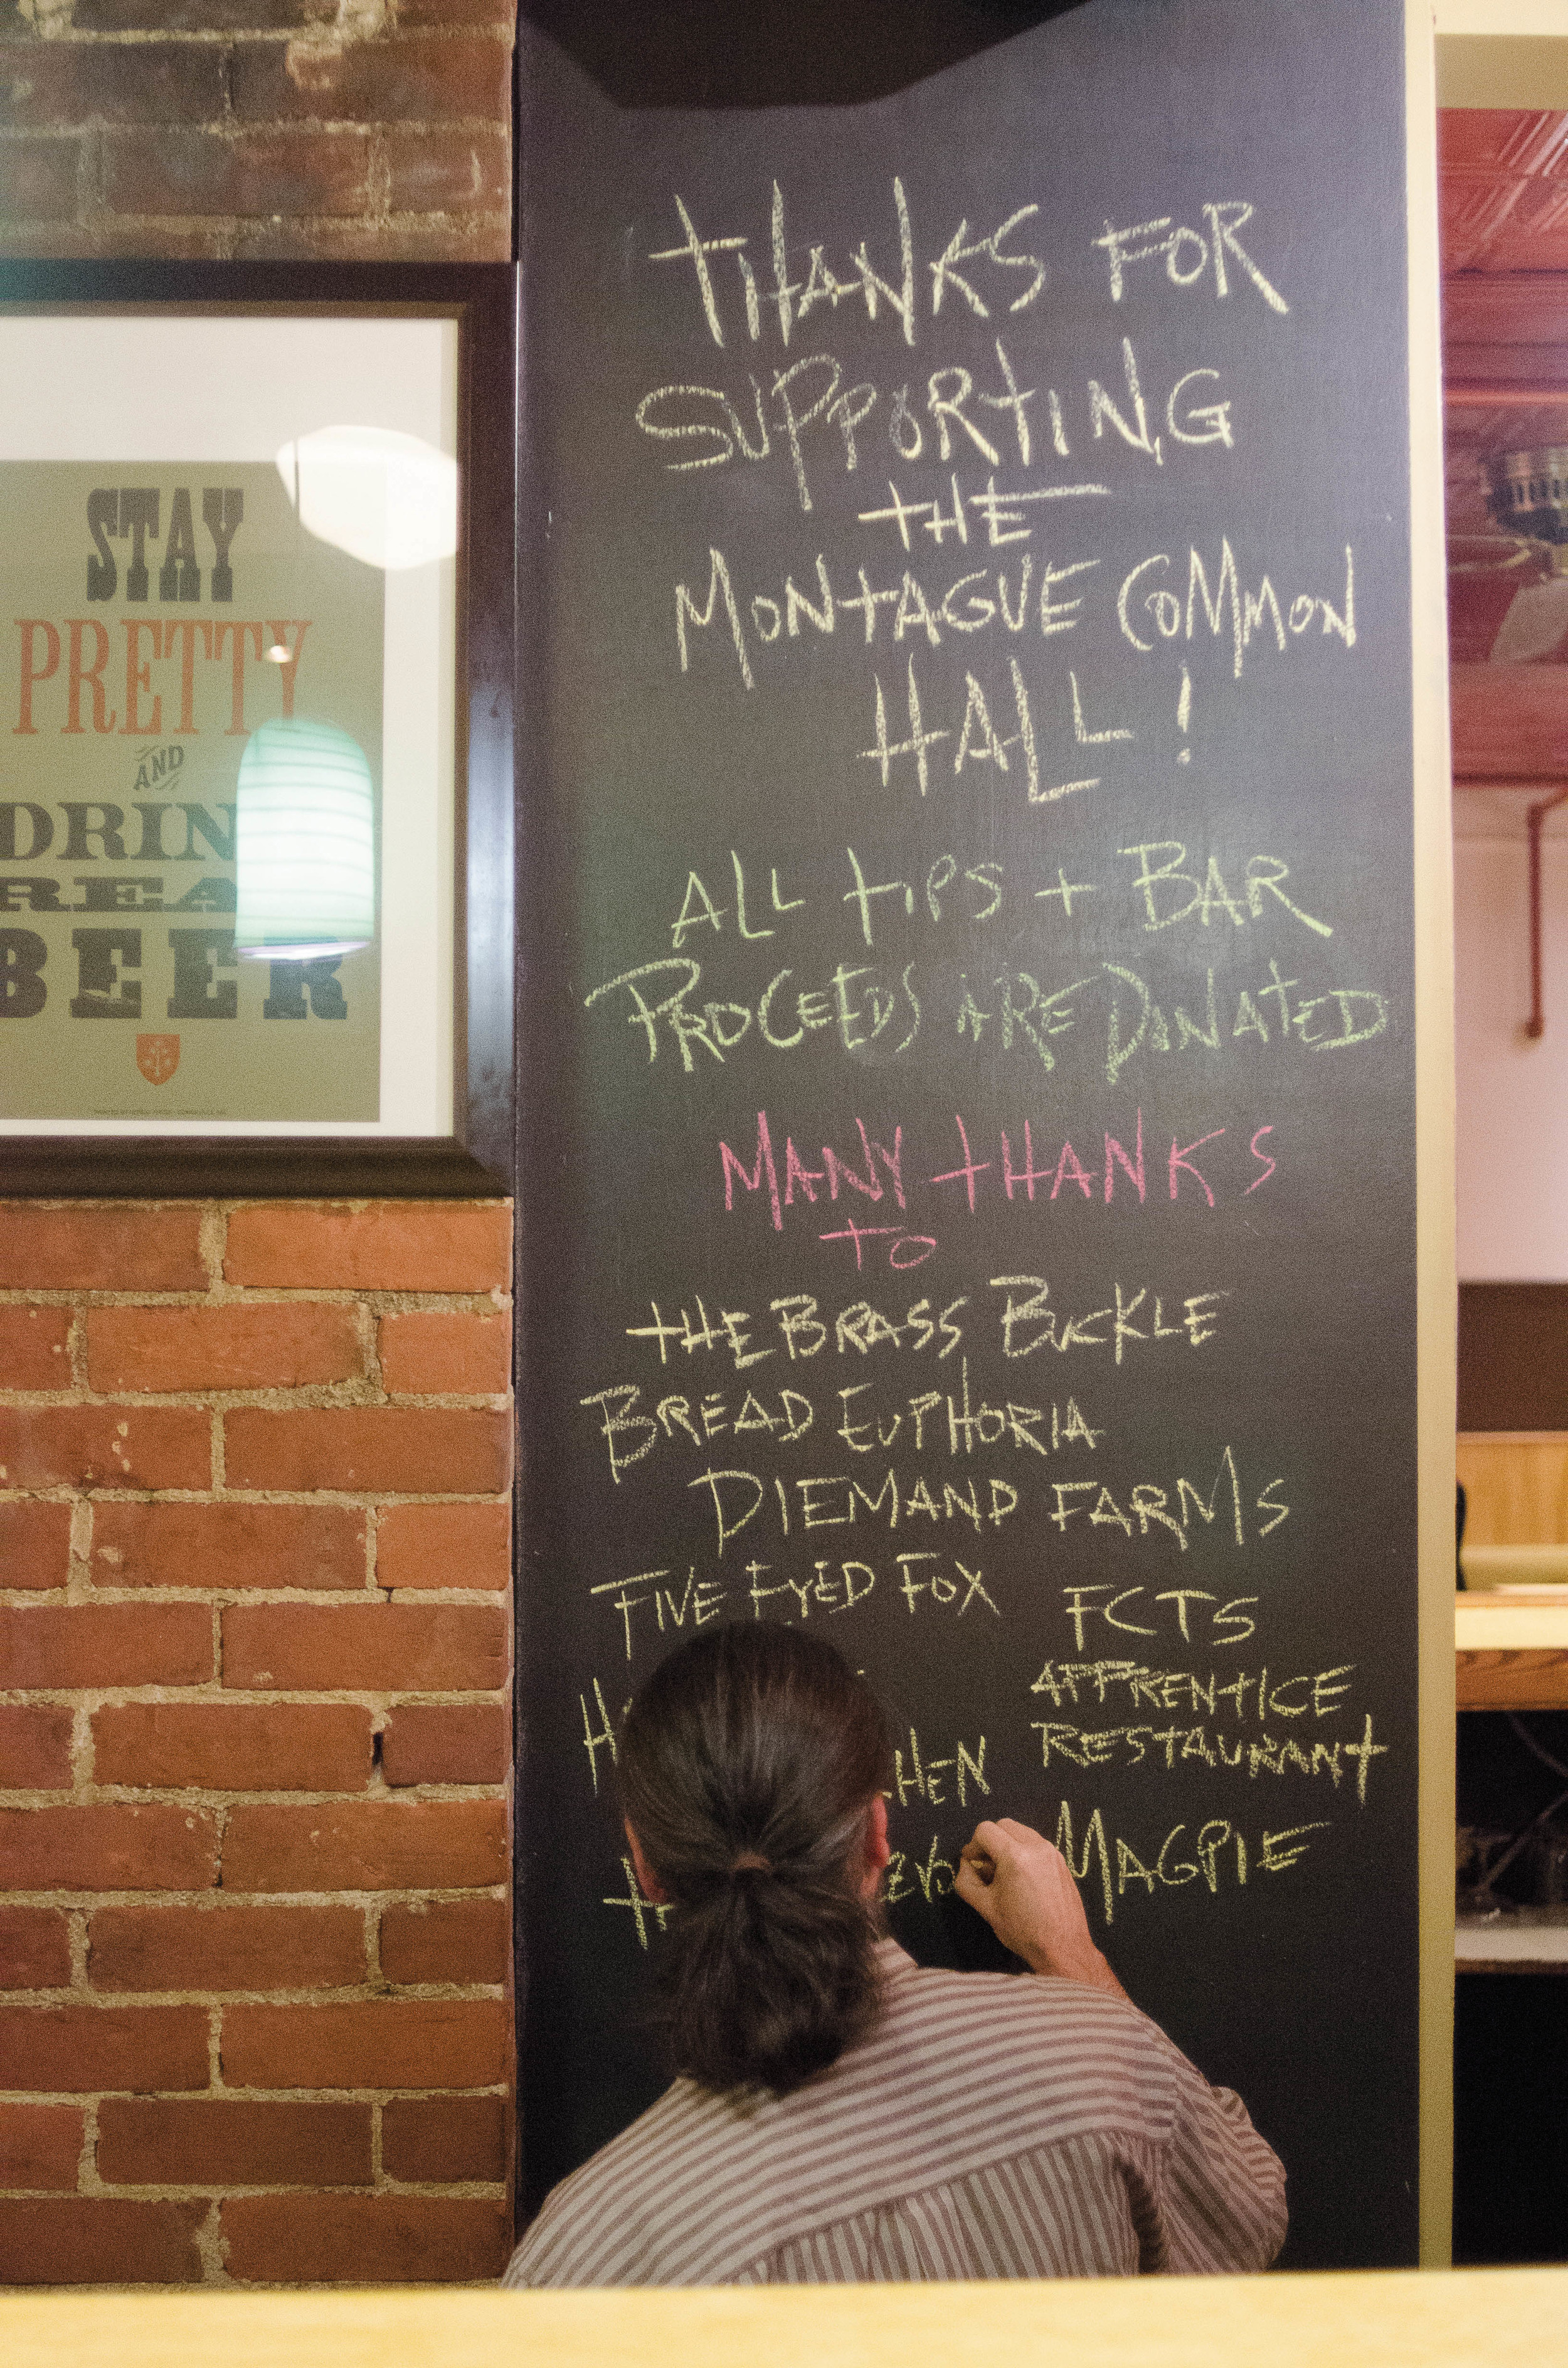 STAY
PRETTY
AND
DRIN
REA
BEER
THANKS FOR
SUPPORTING
THE
MONTAGUE COMMON
HALL!
ALL TIPS + BAR
PROCEEDS ARE DONATED
MANY THANKS
TO
THE BRASS BUCKLE
BREAD EUPHORIA
DIEMAND FARMS
FIVE EYED FOX
HEN
FCTS
APPRENTICE
RESTAURANT
MAGPIE